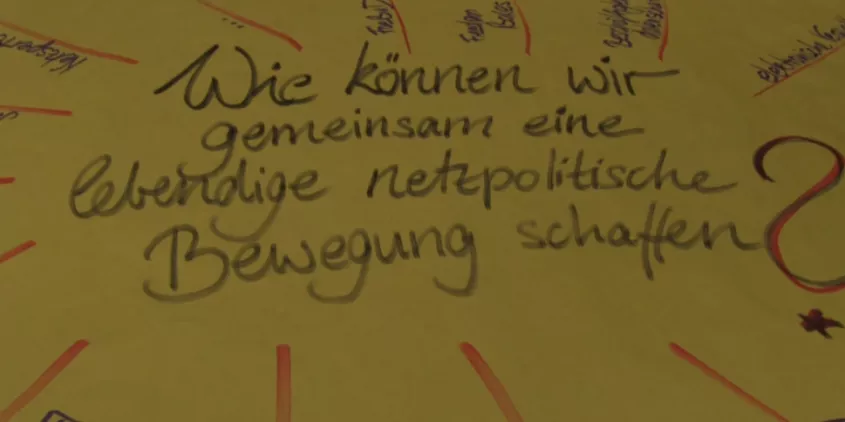 ...
Netzsperre
Wie können wir
gemeinsam eine
lebendige netzpolitische
Bewegung schaffen
?